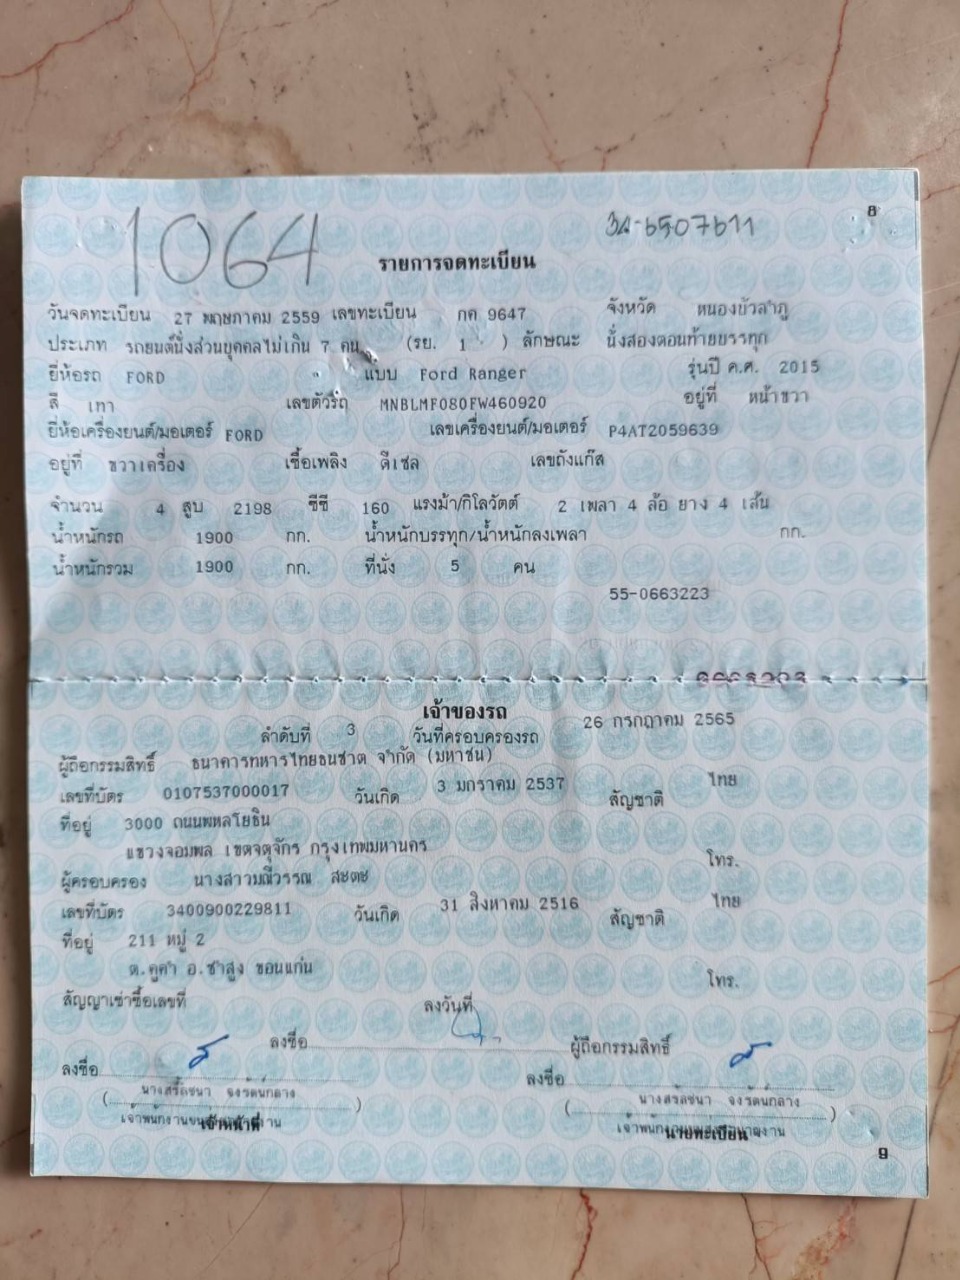 8
1064
34-6507611
รายการจดทะเบียน
วันจดทะเบียน 27 พฤษภาคม 2559 เลขทะเบียน กค 9647 จังหวัด หนองบัวลำภู
ประเภท รถยนต์นั่งส่วนบุคคลไม่เกิน 7 คน (รย. 1 ) ลักษณะ นั่งสองตอนท้ายบรรทุก
ยี่ห้อรถ FORD แบบ Ford Ranger รุ่นปี ค.ศ. 2015
สี เทา เลขตัวรถ MNBLMF080FW460920 อยู่ที่ หน้าขวา
ยี่ห้อเครื่องยนต์/มอเตอร์ FORD เลขเครื่องยนต์/มอเตอร์ P4AT2059639
อยู่ที่ ขวาเครื่อง เชื้อเพลิง ดีเซล เลขถังแก๊ส
จำนวน 4 สูบ 2198 ซีซี 160 แรงม้า/กิโลวัตต์ 2 เพลา 4 ล้อ ยาง 4 เส้น
น้ำหนักรถ 1900 กก. น้ำหนักบรรทุก/น้ำหนักลงเพลา กก.
น้ำหนักรวม 1900 กก. ที่นั่ง 5 คน
55-0663223
เจ้าของรถ
ลำดับที่ 3 วันที่ครอบครองรถ 26 กรกฎาคม 2565
ผู้ถือกรรมสิทธิ์ ธนาคารทหารไทยธนชาต จำกัด (มหาชน)
เลขที่บัตร 0107537000017 วันเกิด 3 มกราคม 2537 สัญชาติ ไทย
ที่อยู่ 3000 ถนนพหลโยธิน
แขวงจอมพล เขตจตุจักร กรุงเทพมหานคร โทร.
ผู้ครอบครอง นางสาวมณีวรรณ สะตะ
เลขที่บัตร 3400900229811 วันเกิด 31 สิงหาคม 2516 สัญชาติ ไทย
ที่อยู่ 211 หมู่ 2
ต.คูคำ อ.ซำสูง ขอนแก่น โทร.
สัญญาเช่าซื้อเลขที่ ลงวันที่
ลงชื่อ ผู้ถือกรรมสิทธิ์
ลงชื่อ ลงชื่อ
( ) ( )
เจ้าหน้าที่ นายทะเบียน
9